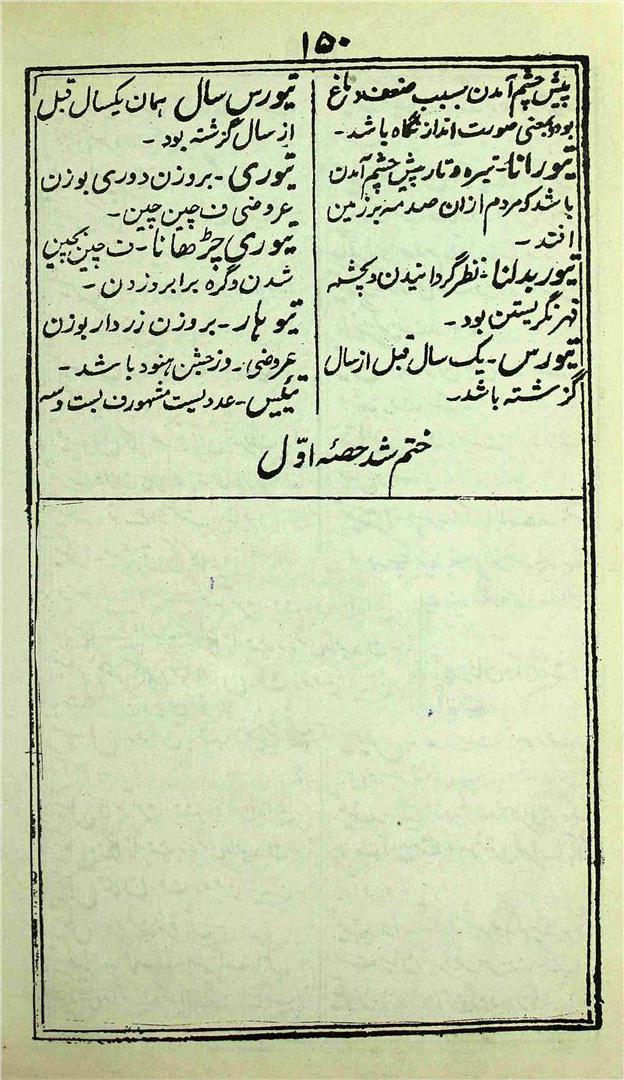 ۱۵۰
پیش چشم آمدن بسبب ضعف دماغ
بود و بمعنی صورت انداز نگاہ باشد۔
تیورانا۔ تیرہ و تار پیش چشم آمدن
باشد کہ مردم ازان صدمہ برزمین
افتد۔
تیور بدلنا۔ نظر گردانیدن و بچشم
قہر نگریستن بود۔
تیورس۔ یک سال قبل از سال
گزشتہ باشد۔
تیورس سال ہمان یکسال قبل
از سال گزشتہ بود۔
تیوری۔ بروزن دوری بوزن
عروضی ف چین جبین۔
تیوری چڑھانا۔ ف چین بجبین
شدن و گرہ برابرو زدن۔
تیوہار۔ بروزن زردار بوزن
عروضی۔ روز جشن ہنود باشد۔
تیئیس۔ عددیست مشہور ف بست و سہ
ختم شد حصّہ اوّل